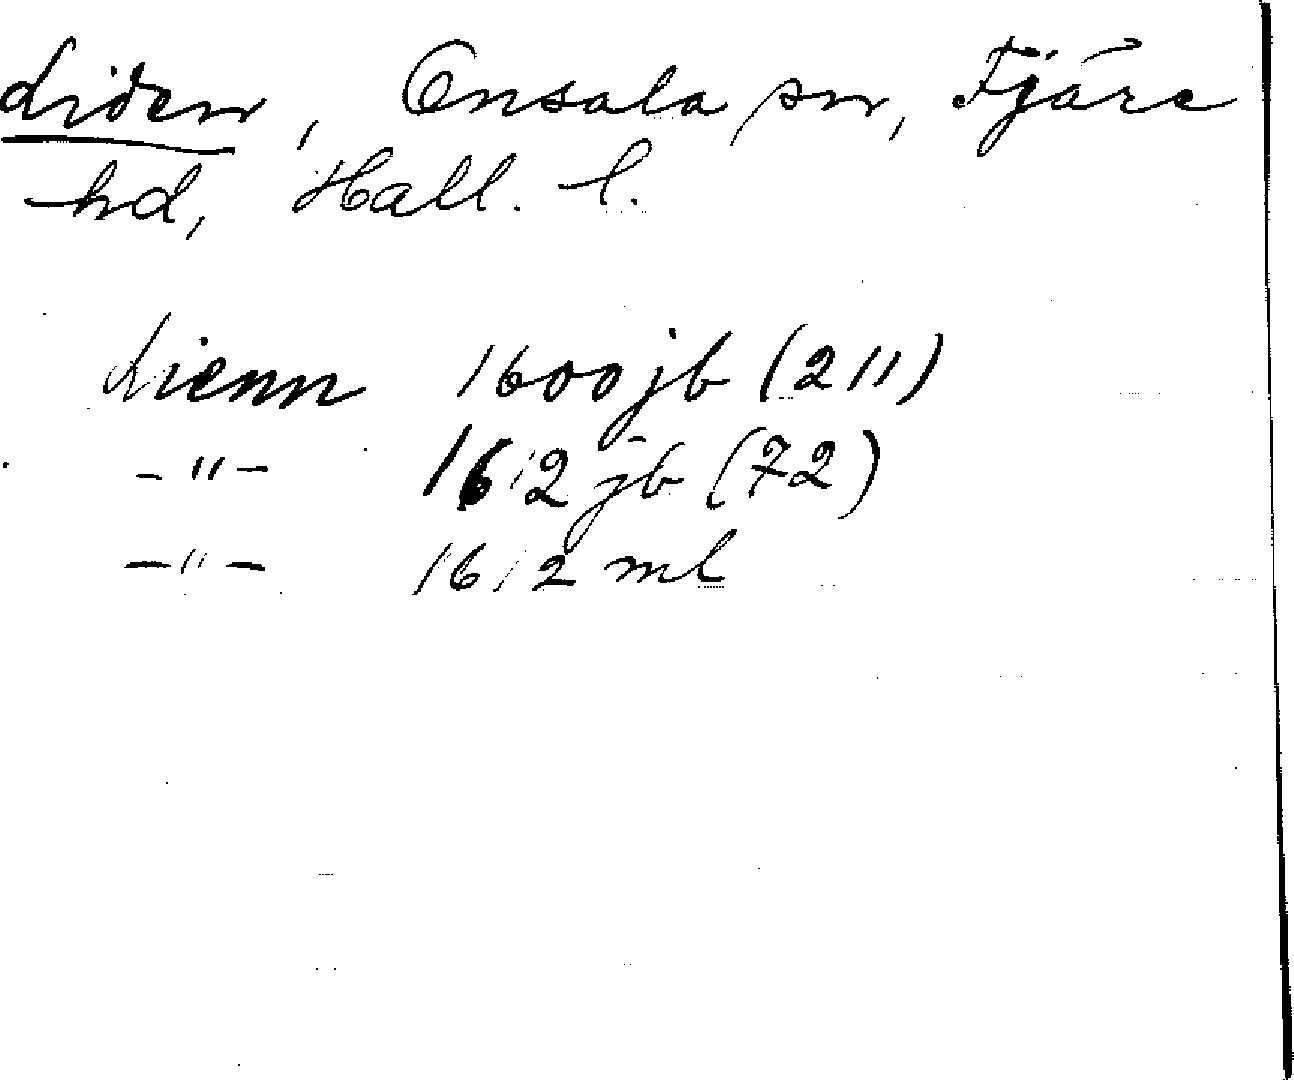 Liden, Onsala sn, Fjäre
hd, Hall. l.
Lienn 1600 jb (211)
-"- 1612 jb (72)
-"- 1612 ml